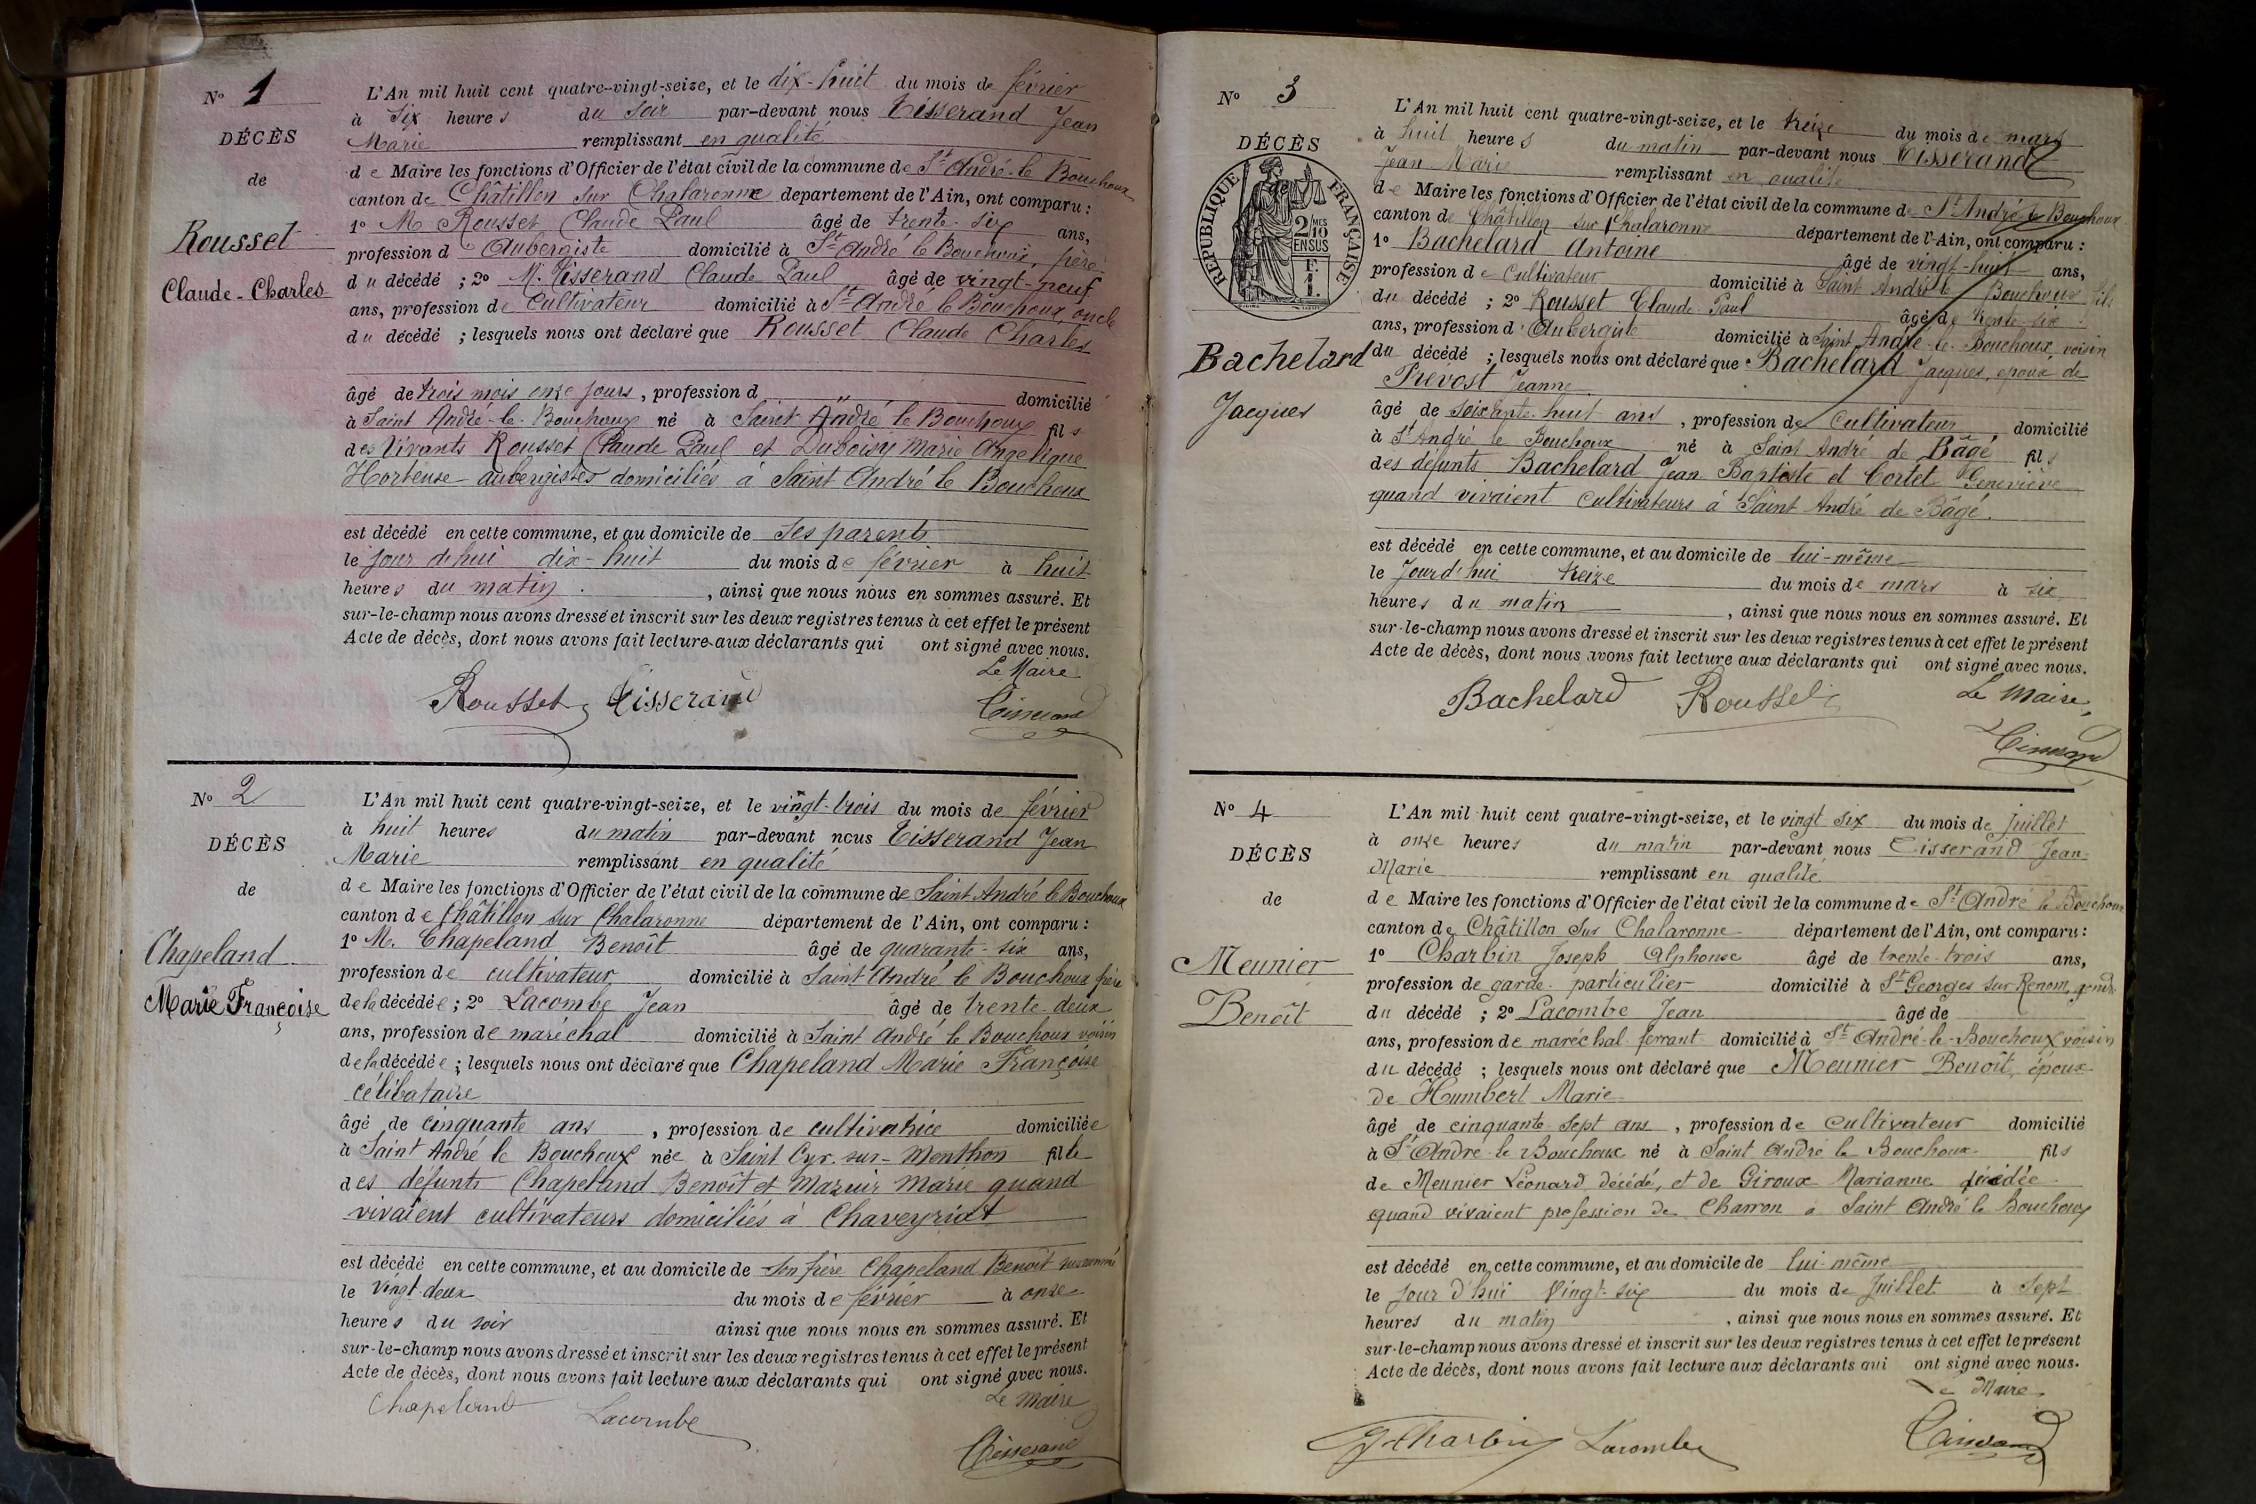 N° 1
DÉCÈS
de
Rousset
Claude-Charles
L'An mil huit cent quatre-vingt-seize, et le dix-huit du mois de février
à six heures du soir par-devant nous Tisserand Jean
Marie remplissant en qualité
de Maire les fonctions d'Officier de l'état civil de la commune de St André-le Bouchoux
canton de Châtillon sur Chalaronne departement de l'Ain, ont comparu :
1° M Rousset Claude Paul âgé de trente-six ans,
profession d Aubergiste domicilié à St André le Bouchoux, père
du décédé ; 2° M. Tisserand Claude Paul âgé de vingt-neuf
ans, profession de Cultivateur domicilié à St André le Bouchoux, oncle
du décédé ; lesquels nous ont déclaré que Rousset Claude Charles
âgé de trois mois onze jours, profession d " domicilié
à Saint André-le-Bouchoux né à Saint André le Bouchoux fils
des Vivants Rousset Claude Paul et Duboisy Marie Angelique
Hortense aubergistes domiciliés à Saint André le Bouchoux
est décédé en cette commune, et au domicile de ses parents
le jour dehui dix-huit du mois de février à huit
heures du matin, ainsi que nous nous en sommes assuré. Et
sur-le-champ nous avons dressé et inscrit sur les deux registres tenus à cet effet le présent
Acte de décès, dont nous avons fait lecture aux déclarants qui ont signé avec nous.
Le Maire
Rousset Tisserand Tisserand
N° 2
DÉCÈS
de
Chapeland
Marie Françoise
L'An mil huit cent quatre-vingt-seize, et le vingt-trois du mois de février
à huit heures du matin par-devant nous Tisserand Jean
Marie remplissant en qualité
de Maire les fonctions d'Officier de l'état civil de la commune de Saint André le Bouchoux
canton de Châtillon sur Chalaronne département de l'Ain, ont comparu :
1° M. Chapeland Benoît âgé de quarante-six ans,
profession de cultivateur domicilié à Saint André le Bouchoux frère
de la décédée ; 2° Lacombe Jean âgé de trente-deux
ans, profession de maréchal domicilié à Saint André le Bouchoux voisin
de la décédée ; lesquels nous ont déclaré que Chapeland Marie Françoise
célibataire
âgé de cinquante ans, profession de cultivatrice domiciliée
à Saint André le Bouchoux née à Saint Cyr-sur-Menthon fille
des défunts Chapeland Benoît et Mazuir Marie quand
vivaient cultivateurs domiciliés à Chaveyriat
est décédé en cette commune, et au domicile de son frère Chapeland Benoît susnommé
le vingt-deux du mois de février à onze
heures du soir ainsi que nous nous en sommes assuré. Et
sur-le-champ nous avons dressé et inscrit sur les deux registres tenus à cet effet le présent
Acte de décès, dont nous avons fait lecture aux déclarants qui ont signé avec nous.
Le Maire
Chapeland Lacombe Tisserand
N° 3
DÉCÈS
RÉPUBLIQUE FRANÇAISE
2/10 MES
EN SUS
F.
1.
Bachelard
Jacques
L'An mil huit cent quatre-vingt-seize, et le treize du mois de mars
à huit heures du matin par-devant nous Tisserand
Jean Marie remplissant en qualité
de Maire les fonctions d'Officier de l'état civil de la commune de St André le Bouchoux
canton de Châtillon sur Chalaronne département de l'Ain, ont comparu :
1° Bachelard Antoine âgé de vingt-huit ans,
profession de Cultivateur domicilié à Saint André le Bouchoux fils
du décédé ; 2° Rousset Claude Paul âgé de trente six
ans, profession d'Aubergiste domicilié à Saint André-le-Bouchoux, voisin
du décédé ; lesquels nous ont déclaré que Bachelard Jacques, époux de
Prévost Jeanne
âgé de soixante-huit ans, profession de Cultivateur domicilié
à St André le Bouchoux né à Saint André de Bâgé fils
des défunts Bachelard Jean Baptiste et Cortet Geneviève
quand vivaient cultivateurs à Saint André de Bâgé.
est décédé en cette commune, et au domicile de lui-même
le Jourd'hui treize du mois de mars à six
heures du matin, ainsi que nous nous en sommes assuré. Et
sur-le-champ nous avons dressé et inscrit sur les deux registres tenus à cet effet le présent
Acte de décès, dont nous avons fait lecture aux déclarants qui ont signé avec nous.
Bachelard Rousset Le Maire,
Tisserand
N° 4
DÉCÈS
de
Meunier
Benoît
L'An mil huit cent quatre-vingt-seize, et le vingt six du mois de juillet
à onze heures du matin par-devant nous Tisserand Jean
Marie remplissant en qualité
de Maire les fonctions d'Officier de l'état civil de la commune de St André le Bouchoux
canton de Châtillon sur Chalaronne département de l'Ain, ont comparu :
1° Charbin Joseph Alphonse âgé de trente-trois ans,
profession de garde-particulier domicilié à St Georges sur Renom, gendre
du décédé ; 2° Lacombe Jean âgé de
ans, profession de maréchal ferrant domicilié à St André-le-Bouchoux voisin
du décédé ; lesquels nous ont déclaré que Meunier Benoît, époux
de Humbert Marie
âgé de cinquante sept ans, profession de cultivateur domicilié
à St André-le Bouchoux né à Saint André le Bouchoux fils
de Meunier Léonard décédé, et de Giroux Marianne décédée
quand vivaient profession de Charron à Saint André le Bouchoux
est décédé en cette commune, et au domicile de lui-même
le jour d'hui Vingt-six du mois de Juillet à sept
heures du matin, ainsi que nous nous en sommes assuré. Et
sur-le-champ nous avons dressé et inscrit sur les deux registres tenus à cet effet le présent
Acte de décès, dont nous avons fait lecture aux déclarants qui ont signé avec nous.
Le Maire,
Charbin Lacombe Tisserand